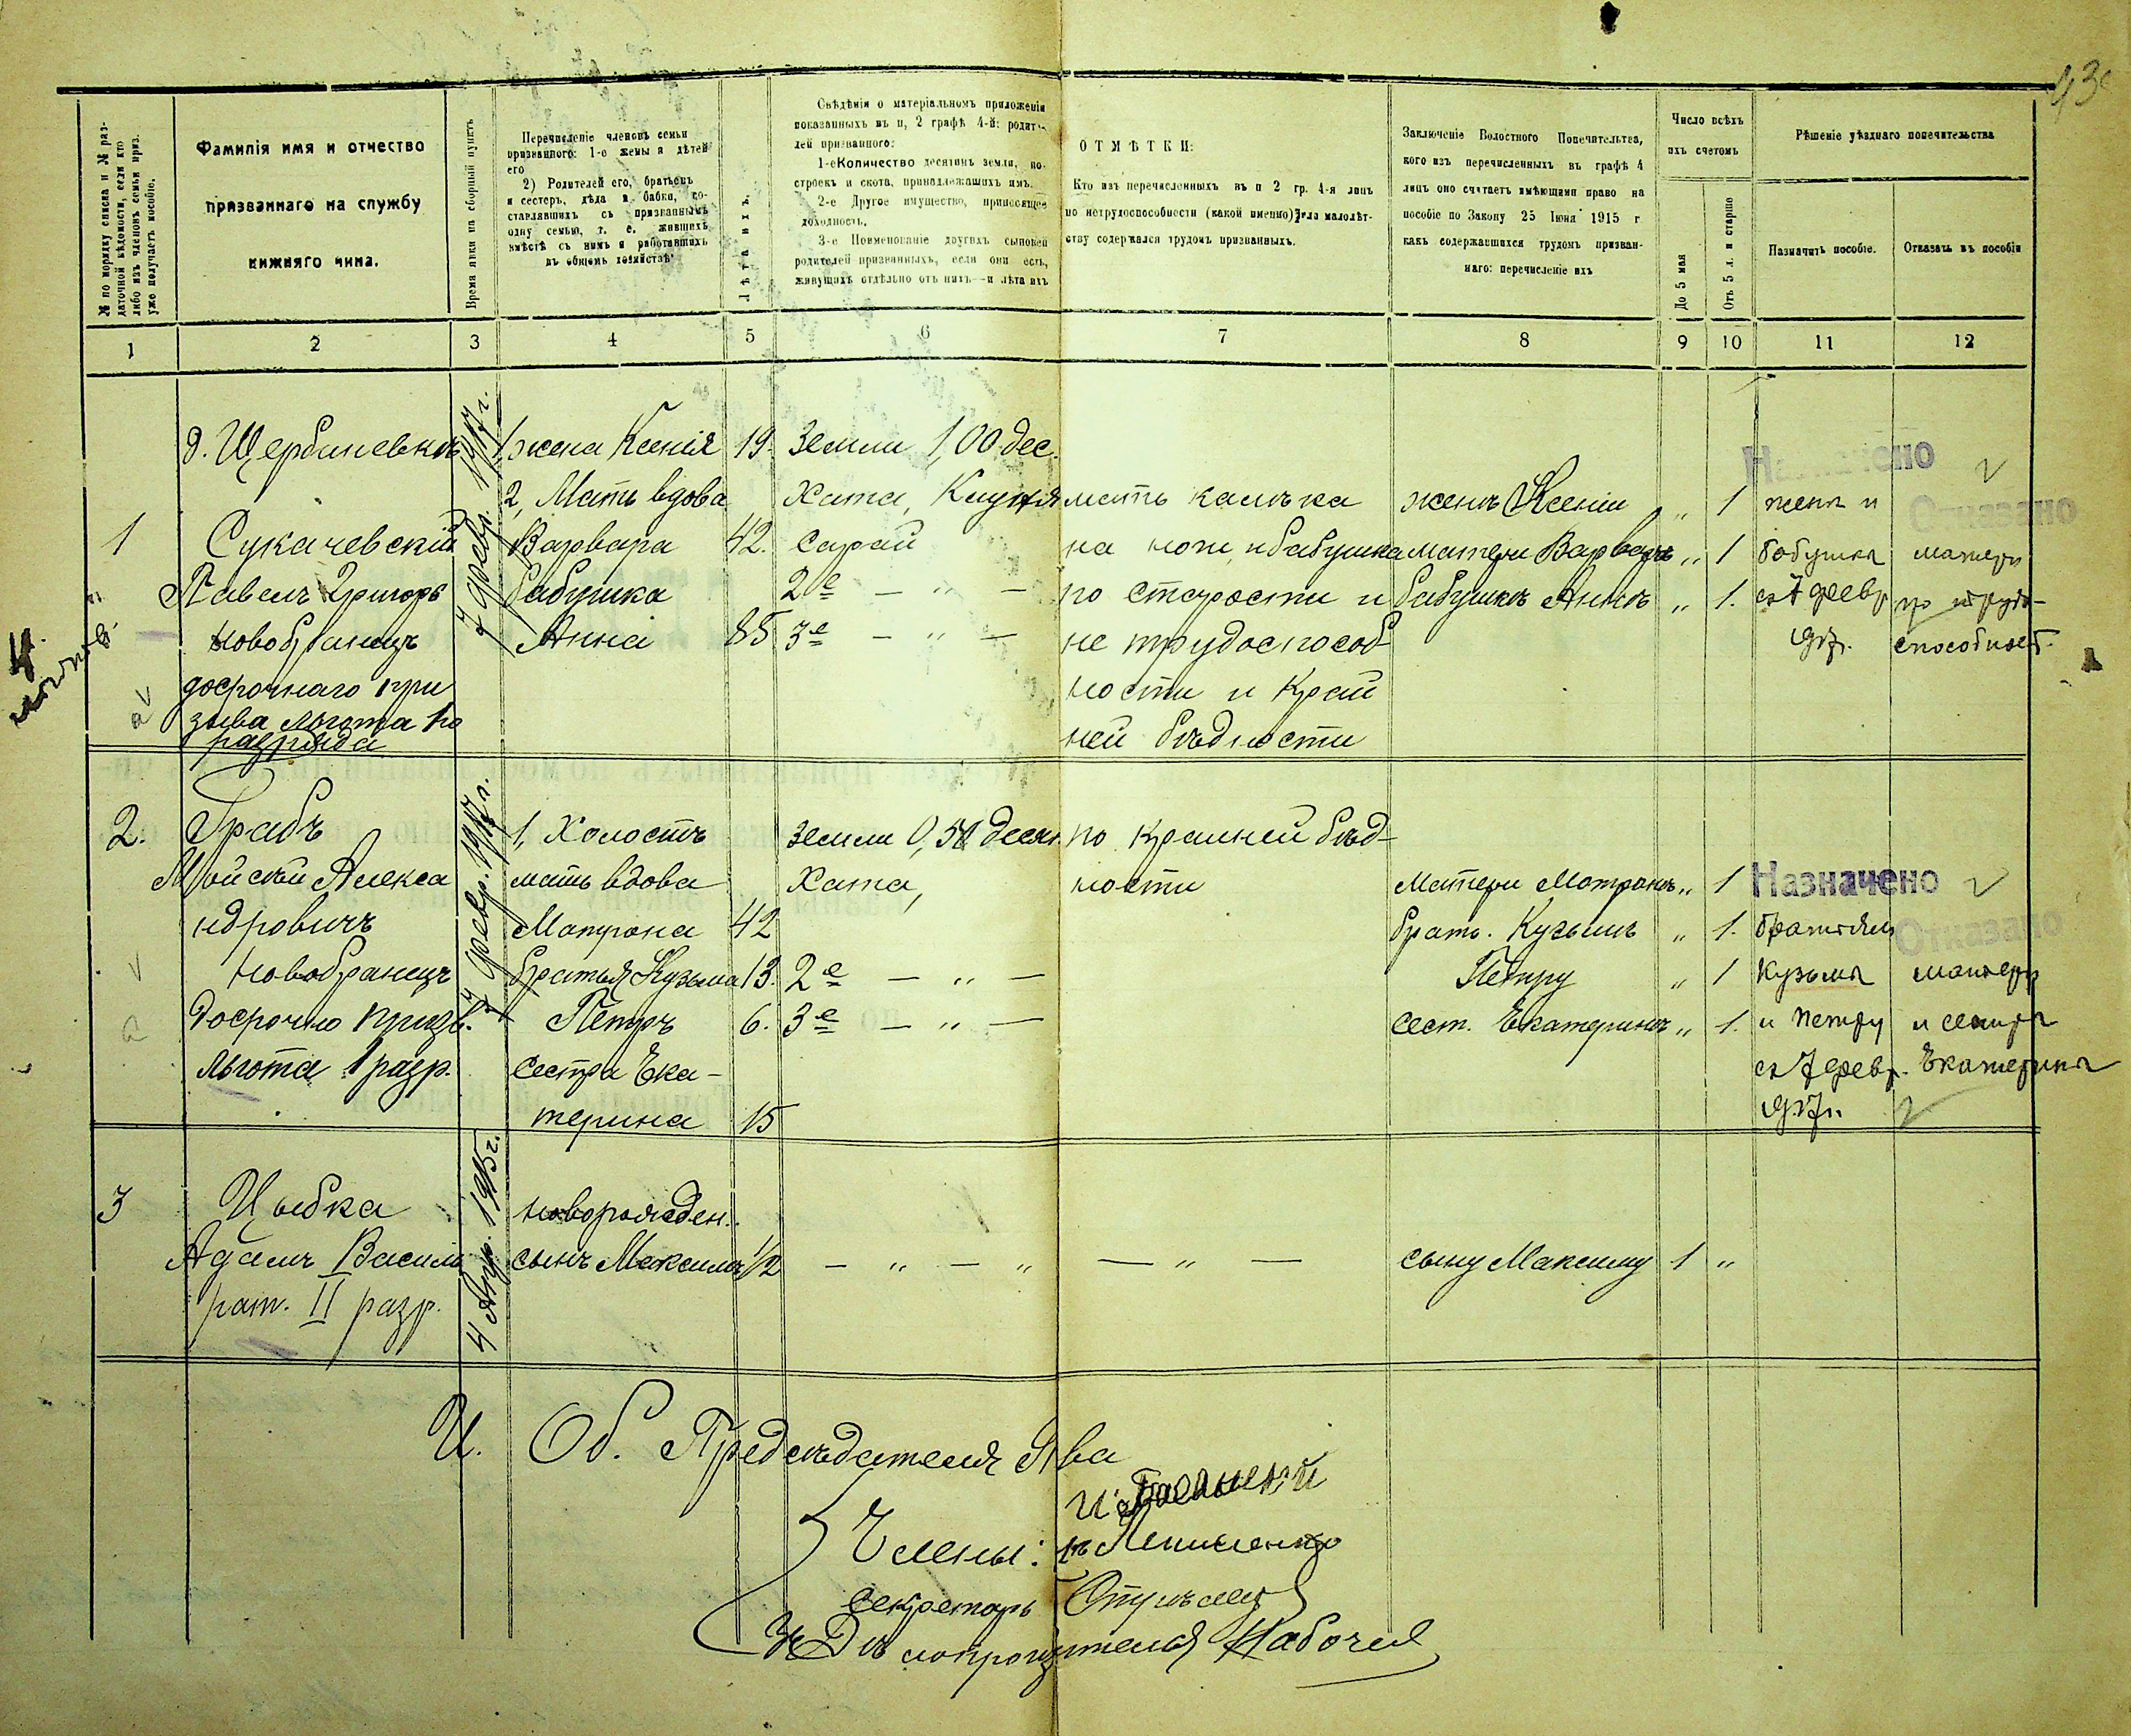 43
№ по порядку списка и № раз-
даточной вѣдомости, если кто
либо изъ членовъ семьи приз.
уже получаетъ пособіе.
Фамилія имя и отчество
призваннаго на службу
нижняго чина.
Время явки на сборный пунктъ
Перечисленіе членовъ семьи
призваннаго: 1-е жены и дѣтей
его
2) Родителей его, братьевъ
и сестеръ, дѣда и бабки, со-
ставлявшихъ съ призваннымъ
одну семью, т. е. жившихъ
вмѣстѣ съ нимъ и работавшихъ
въ общемъ хозяйствѣ
Лѣта ихъ.
Свѣдѣнія о матеріальномъ приложеніи
показанныхъ въ п, 2 графѣ 4-й: родите-
лей призваннаго:
1-е Количество десятинъ земли, по-
строекъ и скота, принадлежащихъ имъ.
2-е Другое имущество, приносящее
доходность.
3-е Поименованіе другихъ сыновей
родителей призванныхъ, если они есть,
живущихъ отдѣльно отъ нихъ—и лѣта ихъ
ОТМѢТКИ:
Кто изъ перечисленныхъ въ п 2 гр. 4-я лицъ
по нетрудоспособности (какой именно) или малолѣт-
ству содержался трудомъ призванныхъ.
Заключеніе Волостного Попечительтва,
кого изъ перечисленныхъ въ графѣ 4
лицъ оно считаетъ имѣющими право на
пособіе по Закону 25 Іюня 1915 г
какъ содержавшихся трудомъ призван-
наго: перечисленіе ихъ
Число всѣхъ
ихъ счетомъ
До 5 мая
Отъ 5 л. и старше
Рѣшеніе уѣзднаго попечительства
Назначить пособіе.
Отказать въ пособіи
1 2 3 4 5 6 7 8 9 10 11 12
д. Щербиневка
1
Сукачевскій
Павелъ Григорь
новобранецъ
досрочнаго при
зыва льгота 1го
разряда
7 февр. 1917 г.
1, жена Ксенія 19.
2, Мать вдова
Варвара 42.
бабушка
Анна 85
Земли 1,00 дес.
Хата, Клуня
сарай
2е — „ —
3е — „ —
мать калѣка
на ноги и бабушка
по старости и
не трудоспособ-
ности и край
ней бѣдности
женѣ Ксеніи „ 1
матери Варварѣ „ 1
бабушкѣ Аннѣ „ 1.
Назначено
жена и
бабушка
съ 7 февр
917г.
Отказано
матери
по трудо-
способност.
2.
Грабъ
Мойсей Алекса
ндровичъ
новобранецъ
досрочно призв.
льгота 1 разр.
7 февр. 1917 г.
1, Холостъ
мать вдова
Матрона 42
братья Кузьма 13.
Петръ 6.
сестра Ека-
терина 15
Земли 0,50 десят.
Хата,
2е — „ —
3е — „ —
по крайней бѣд-
ности
Матери Матронѣ „ 1
брату. Кузьмѣ „ 1.
Петру „ 1
сест. Екатеринѣ „ 1.
Назначено
братьям
Кузьма
и Петру
съ 7 февр.
917г.
Отказано
матери
и сестра
Екатерина
3
Цыбка
Адамъ Василь
рат. II разр.
4 Апр. 1915 г.
новорожден.
сынъ Максимъ 1/2
— „ — „
— „ —
сыну Максиму 1 „
И. Об. Предсѣдателя
Члены:
Секретарь